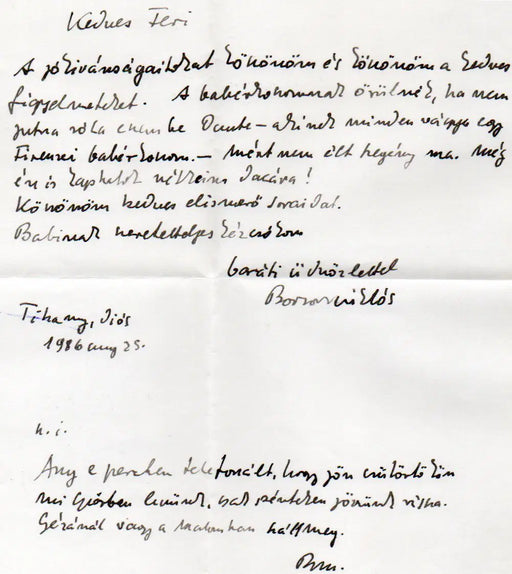 Kedves Feri
A jókívánságaitokat köszönöm és köszönöm a kedves
figyelmeteket. A babérkoszorúnak örülnék, ha nem
jutna róla eszembe Dante – akinek minden vágya egy
Firenzei babérkoszorú. – Miért nem élt szegény ma. Még
én is kaphatok
Köszönöm kedves elismerő soraidat.
Babinak szeretetteljes kézcsókom
baráti üdvözlettel
Borsos Miklós
Tihany, Diós
1986 aug 25.
u.i.
Any e percben telefonált, hogy jön csütörtökön
mi Győrben leszünk, csak pénteken jövünk vissza.
Gézánál vagy a malomban hált meg.
Bm.